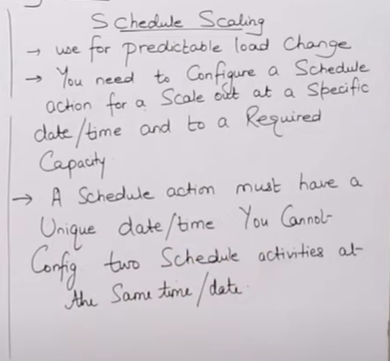 Schedule Scaling
→ use for predictable load Change
→ You need to Configure a Schedule
action for a Scale out at a Specific
date/time and to a Required
Capacity.
→ A Schedule action must have a
Unique date/time You Cannot
Config two Schedule activities at
the Same time/date.